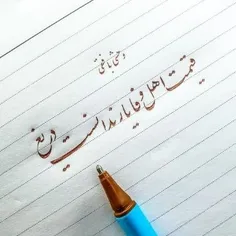 وحشی بافقی
قیمت اهل وفا یار ندانست دریغ